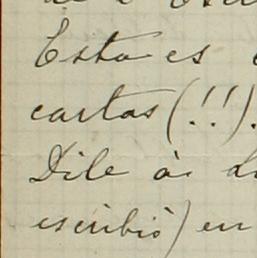 Esta es
cartas (!!).
Dile á
escribió) en